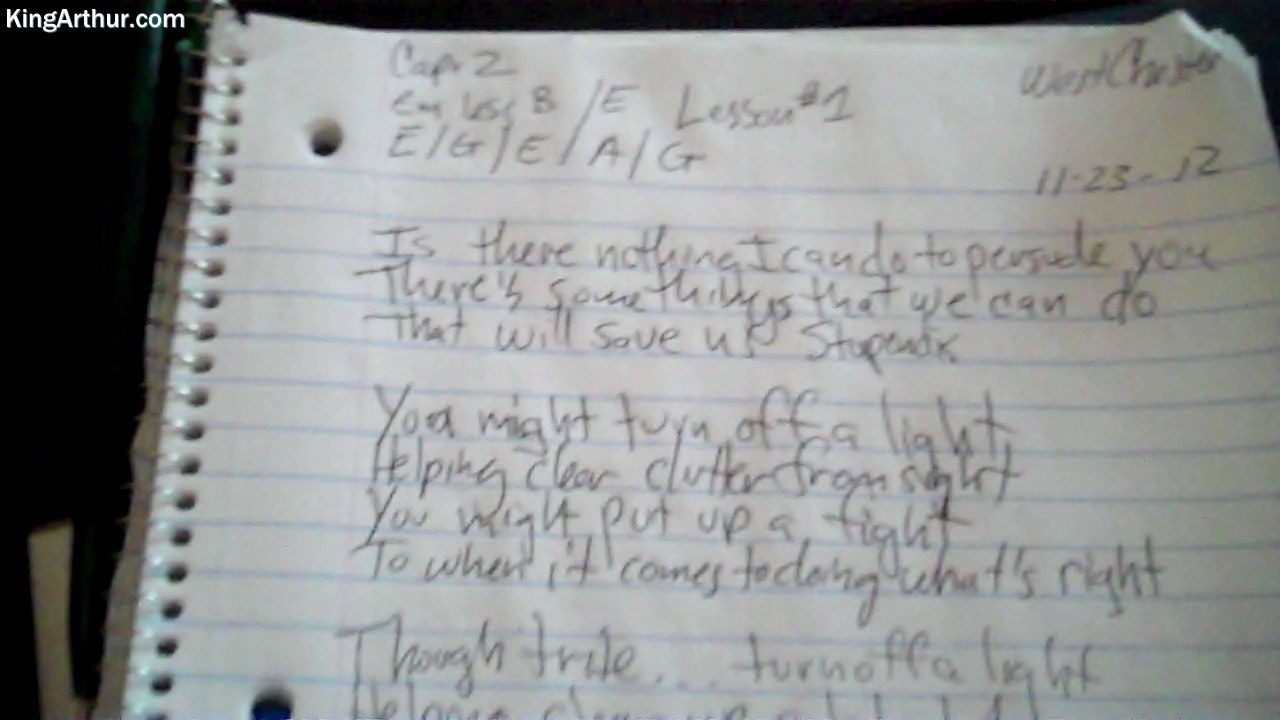 KingArthur.com
Capo 2
WestChester
B / E Lesson #1
E / G / E / A / G
11-23-12
Is there nothing I can do to persude you
There's somethings that we can do
That will save us
You might turn off a light
Helping clear clutter from sight
You might put up a fight
To when it comes to doing what's right
Though trite... turn off a light
Helping